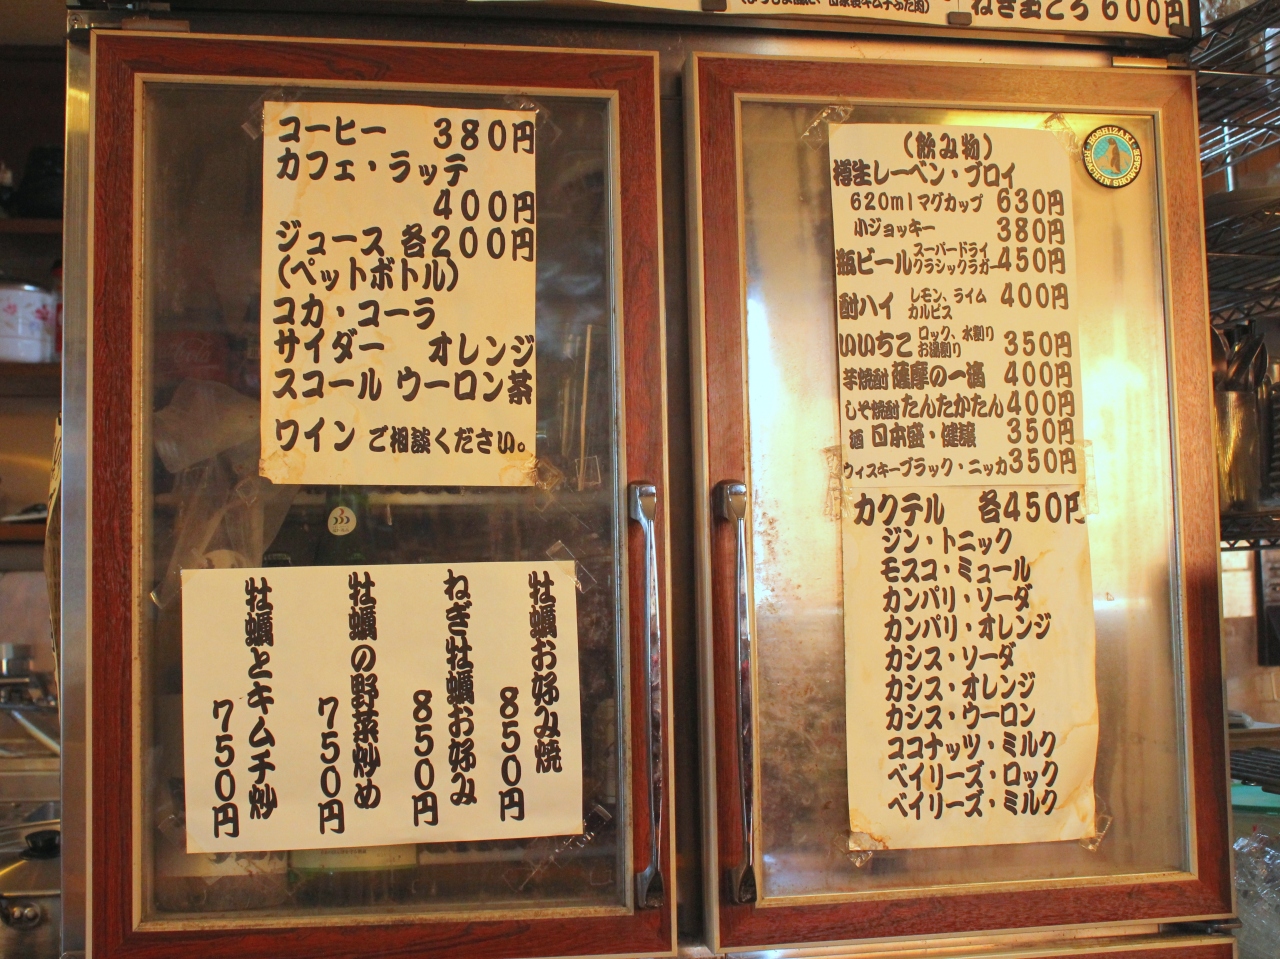 ねぎまどろ600円
コーヒー 380円
カフェ・ラッテ
400円
ジュース 各200円
(ペットボトル)
コカ・コーラ
サイダー オレンジ
スコール ウーロン茶
ワイン ご相談ください。
牡蠣お好み焼
850円
ねぎ牡蠣お好み
850円
牡蠣の野菜炒め
750円
牡蠣とキムチ炒
750円
(飲み物)
樽生レーベン・ブロイ
620mlマグカップ 630円
小ジョッキー 380円
瓶ビール スーパードライ クラシックラガー 450円
酎ハイ レモン、ライム カルピス 400円
いいちこ ロック、水割り お湯割り 350円
芋焼酎 薩摩の一滴 400円
しそ焼酎 たんたかたん 400円
酒 日本盛・健醸 350円
ウィスキーブラック・ニッカ 350円
カクテル 各450円
ジン・トニック
モスコ・ミュール
カンパリ・ソーダ
カンパリ・オレンジ
カシス・ソーダ
カシス・オレンジ
カシス・ウーロン
ココナッツ・ミルク
ベイリーズ・ロック
ベイリーズ・ミルク
HOSHIZAKI
REACH-IN SHOWCASE